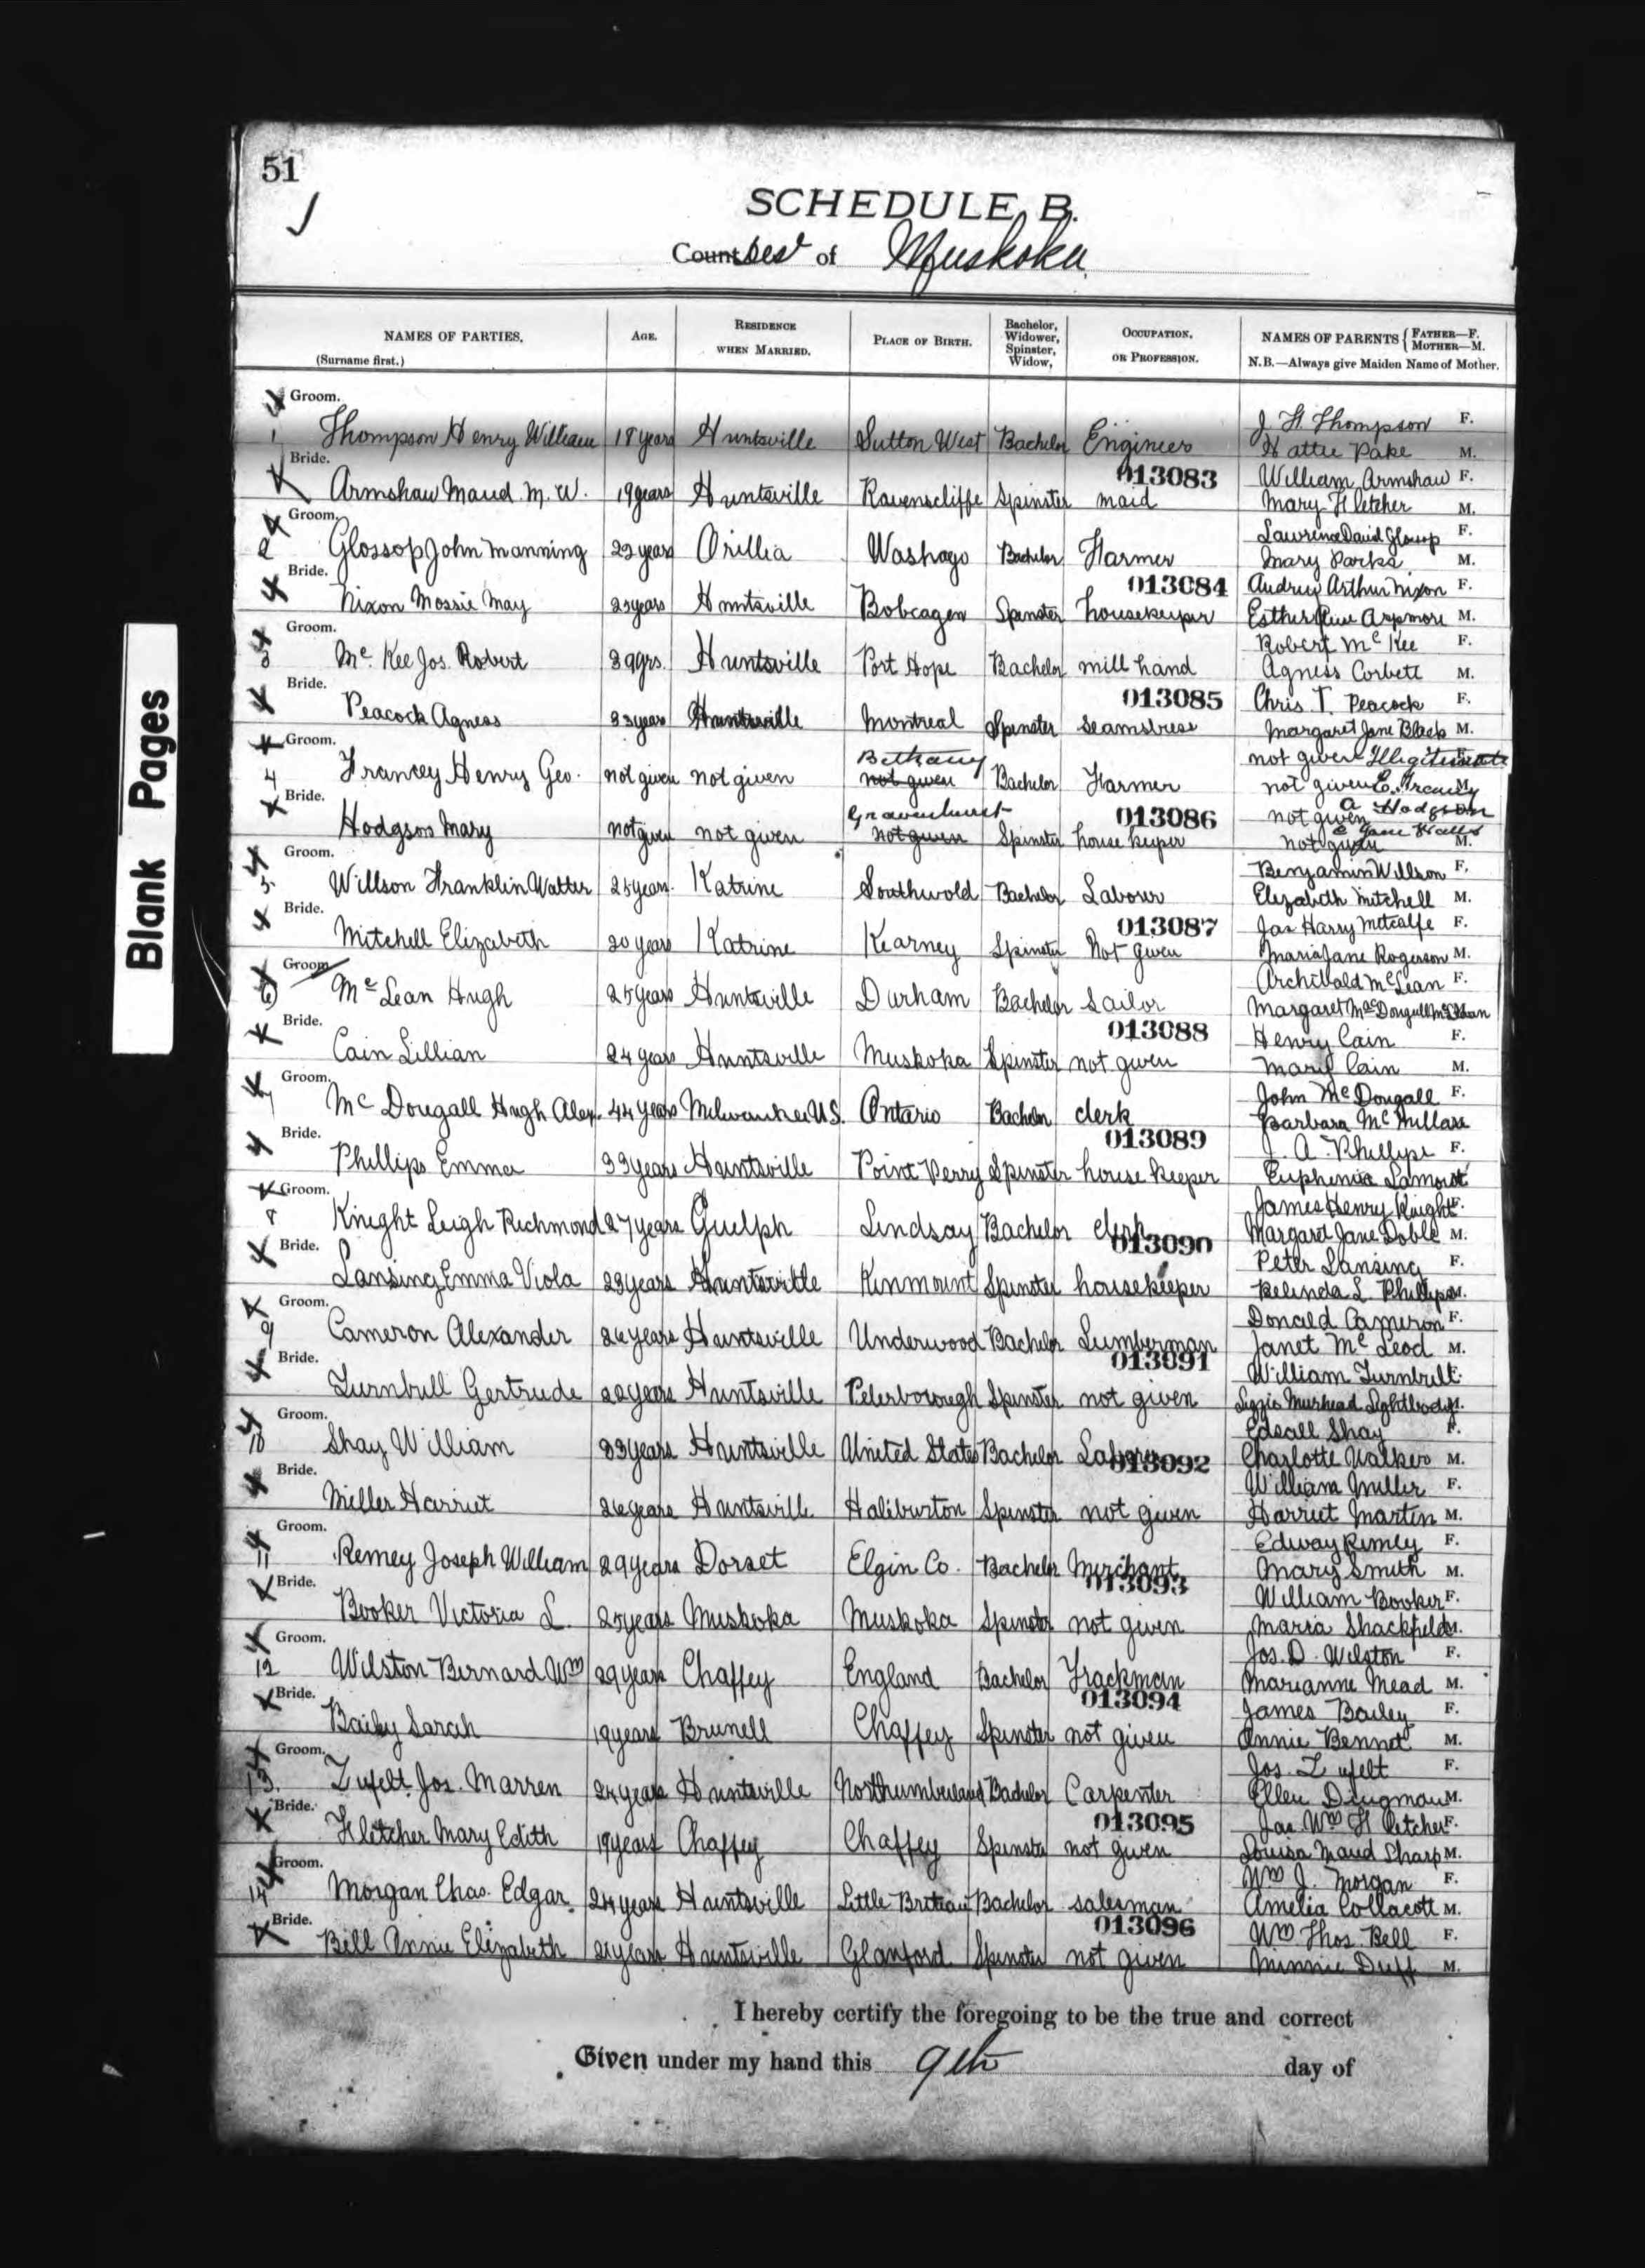 51
SCHEDULE B.
Counties of Muskoka
NAMES OF PARTIES. (Surname first.) AGE. RESIDENCE WHEN MARRIED. PLACE OF BIRTH. Bachelor, Widower, Spinster, Widow, OCCUPATION. OR PROFESSION. NAMES OF PARENTS { FATHER—F. MOTHER—M. N.B.—Always give Maiden Name of Mother.
Groom.
J. H. Thompson F.
1 Thompson Henry William 18 years Huntsville Sutton West Bachelor Engineer Hattie Pake M.
Bride. 013083 William Armshaw F.
Armshaw Maud. M. W. 19 years Huntsville Ravenscliffe Spinster maid Mary Fletcher M.
Groom. Lawrence David Glossop F.
2 Glossop John Manning 22 years Orillia Washago Bachelor Farmer Mary Parks M.
Bride. 013084 Audrey Arthur Nixon F.
Nixon Mossie May years Huntsville Bobcagen Spinster housekeeper Esther M.
Groom. Robert Mc Kee F.
3 Mc. Kee Jos. Robert 39 yrs. Huntsville Port Hope Bachelor mill hand Agness Corbett M.
Bride. 013085 Chris. T. Peacock F.
Peacock Agness 33 years Huntsville Montreal Spinster seamstress Margaret Jane Black M.
Groom. Bethany not given Illigitimate
4 Francey Henry Geo. not given not given not given Bachelor Farmer not given E. Francey M.
Bride. Gravenhurst 013086 not given A Hodgson
Hodgson Mary not given not given not given Spinster house keeper not given Jane M.
Groom. Benjamin Willson F.
5. Willson Franklin Walter 25 years. Katrine Southwold Bachelor Labourer Elizabeth Mitchell M.
Bride. 013087 Jas Harry Metcalfe F.
Mitchell Elizabeth 20 years Katrine Kearney Spinster Not Given Maria Jane Rogerson M.
Groom Archibald Mc Lean F.
6 Mc Lean Hugh 25 years Huntsville Durham Bachelor sailor Margaret
Bride. 013088 Henry Cain F.
Cain Lillian 24 years Huntsville Muskoka Spinster not given Mary Cain M.
Groom. John Mc Dougall F.
7 Mc Dougall Hugh Alex. 44 years Milwaukee U.S. Ontario Bachelor clerk Barbara Mc Millan
Bride. 013089 J. A. Phillips F.
Phillips Emma 33 years Huntsville Point Perry Spinster house keeper Euphemia Lamont
Groom. James Henry Knight F.
8 Knight Leigh Richmond 27 years Guelph Lindsay Bachelor clerk Margaret Jane Doble M.
Bride. 013090 Peter Lansing F.
Lansing Emma Viola 23 years Huntsville Kinmount Spinster housekeeper Belinda L. Phillips M.
Groom. Donald Cameron F.
9 Cameron Alexander years Huntsville Underwood Bachelor Lumberman Janet Mc Leod M.
Bride. 013091 William Turnbull F.
Turnbull Gertrude 22 years Huntsville Peterborough Spinster not given Lizzie Muirhead Lightbody M.
Groom. Edsall Shay F.
10 Shay William 33 years Huntsville United States Bachelor Laborer Charlotte Walker M.
Bride. 013092 William Miller F.
Miller Harriet years Huntsville Haliburton Spinster not given Harriet Martin M.
Groom. Edway Remey F.
11 Remey Joseph William 29 years Dorset Elgin Co. Bachelor Merchant Mary Smith M.
Bride. 013093 William Booker F.
Booker Victoria L. 25 years Muskoka Muskoka Spinster not given Maria Shackfield M.
Groom. Jos. D. Wilston F.
12 Wilston Bernard Wm 29 years Chaffey England Bachelor Trackman Marianne Mead M.
Bride. 013094 James Bailey F.
Bailey Sarah 19 years Brunell Chaffey Spinster not given Annie Bennet M.
Groom. Jos. Zufelt F.
13. Zufelt Jos. Marren 24 years Huntsville Northumberland Bachelor Carpenter Ellen Dingman M.
Bride. 013095 Jas Wm Fletcher F.
Fletcher Mary Edith 19 years Chaffey Chaffey Spinster not given Louisa Maud Sharp M.
Groom. Wm J. Morgan F.
14 Morgan Chas. Edgar. 24 years Huntsville Little Britian Bachelor salesman Amelia Collacott M.
Bride. 013096 Wm Thos. Bell F.
Bell Annie Elizabeth years Huntsville Glanford Spinster not given Minnie Duff M.
I hereby certify the foregoing to be the true and correct
Given under my hand this 9th day of
Blank Pages